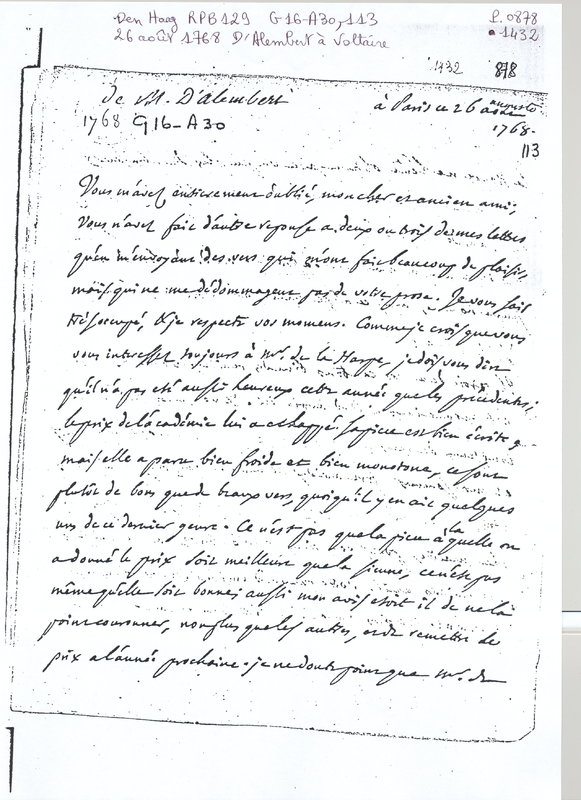 Den Haag RPB129 G16-A30,113 P.0878
26 août 1768 D'Alembert à Voltaire 1432
1432 878
De M. D'alembert à Paris ce 26 auguste
1768 G16-A30 1768.
113
Vous m'avez entierement oublié, mon cher et ancien ami;
Vous n'avez fait d'autre reponse a deux ou trois de mes lettres
qu'en m'envoyant des vers qui m'ont fait beaucoup de plaisir,
mais qui ne me dédommagent pas de votre prose. Je vous sais
très occupé, & je respecte vos momens. Comme je crois que vous
vous interessez toujours à Mr. de la Harpe, je dois vous dire
qu'il n'a pas eté aussi heureux cette année que les précédentes;
le prix de l'académie lui a echappé, sa piece est bien écrite
mais elle a paru bien froide et bien monotone, ce sont
plutôt de bons que de beaux vers, quoiqu'il y en ait quelques
uns de ce dernier genre. Ce n'est pas que la piece à laquelle on
a donné le prix soit meilleure que la sienne, ce n'est pas
même qu'elle soit bonne, aussi mon avis etoit il de ne la
point couronner, non plus que les autres, et de remettre le
prix a l'année prochaine. je ne doute point que Mr. de